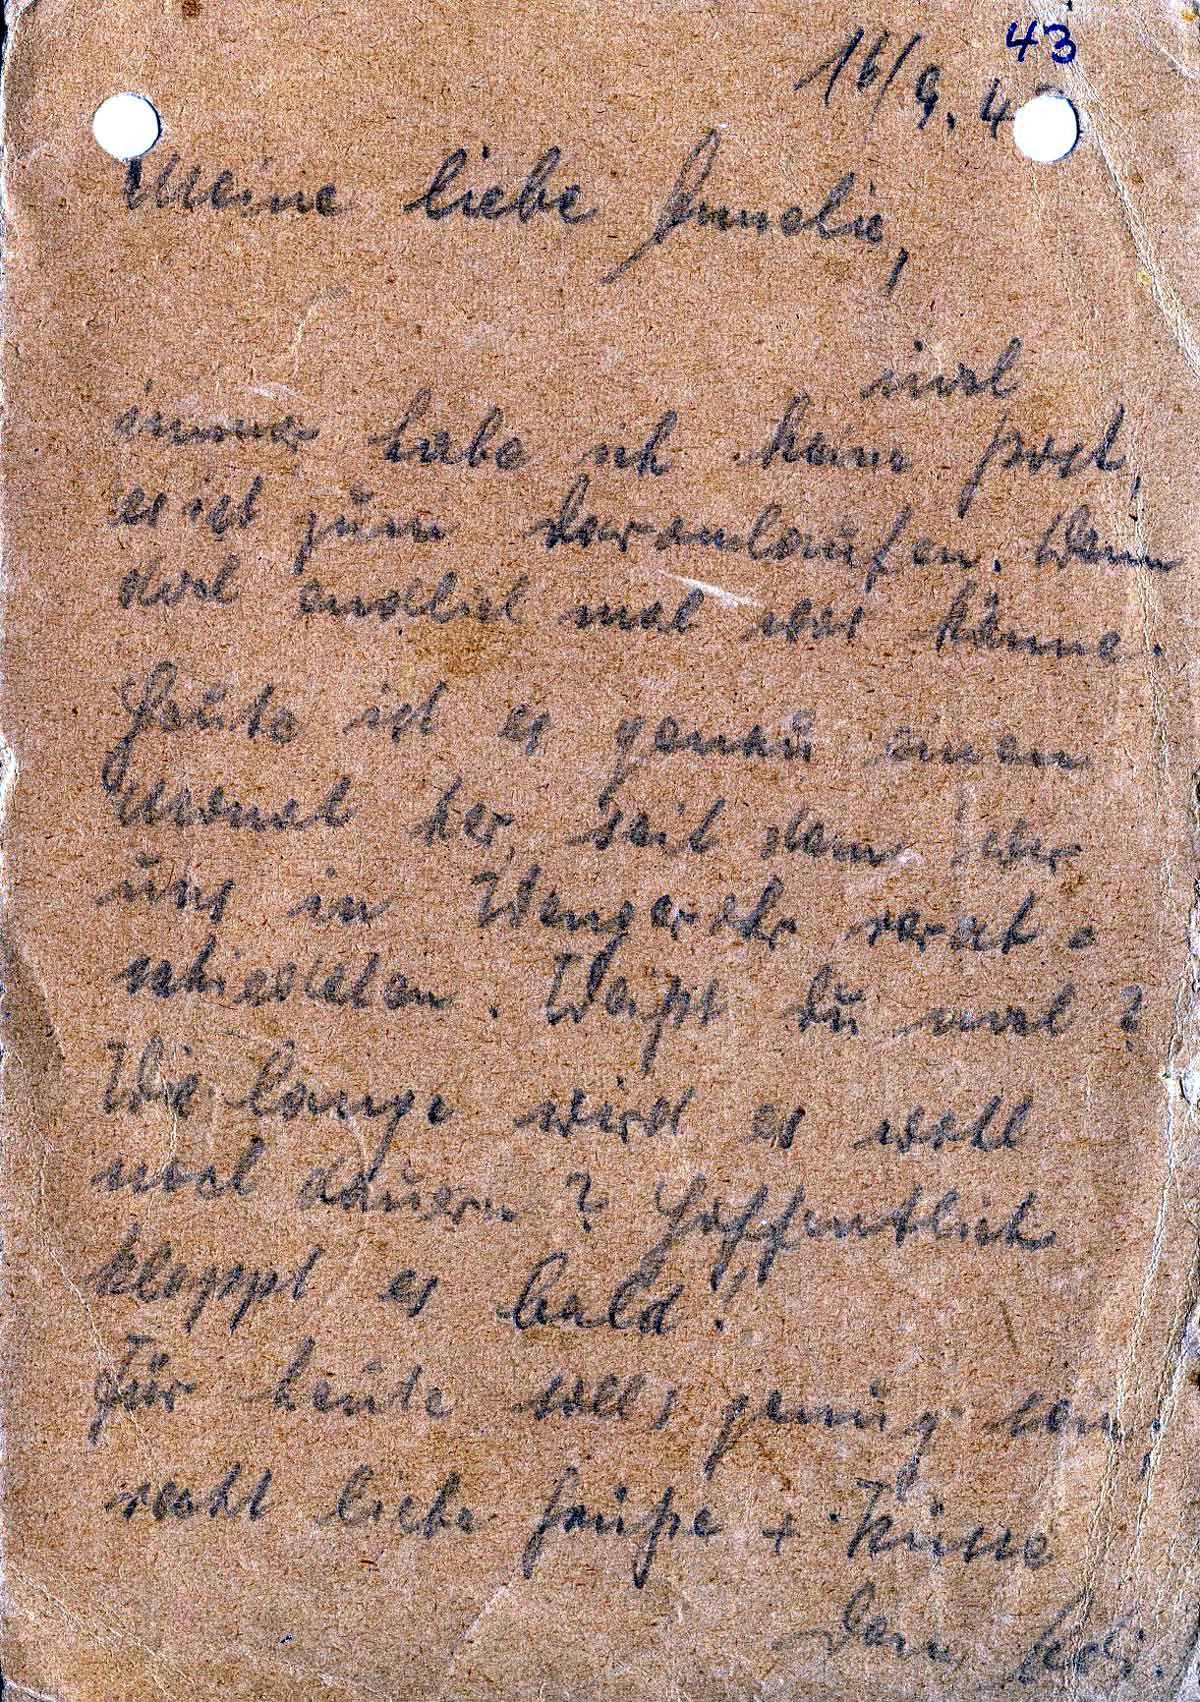 43
16/9.4
Meine liebe Annelie,
noch
immer habe ich keine Post,
es ist zum davonlaufen. Wenn
doch endlich mal was käme.
Heute ist es genau einen
Monat her, seit dem wir
uns in Wengerohr verab=
schiedeten. Weißt Du noch?
Wie lange wird es wohl
noch dauern? Hoffentlich
klappt es bald!
Für heute solls genug sein.
recht liebe Grüße + Küsse
Dein